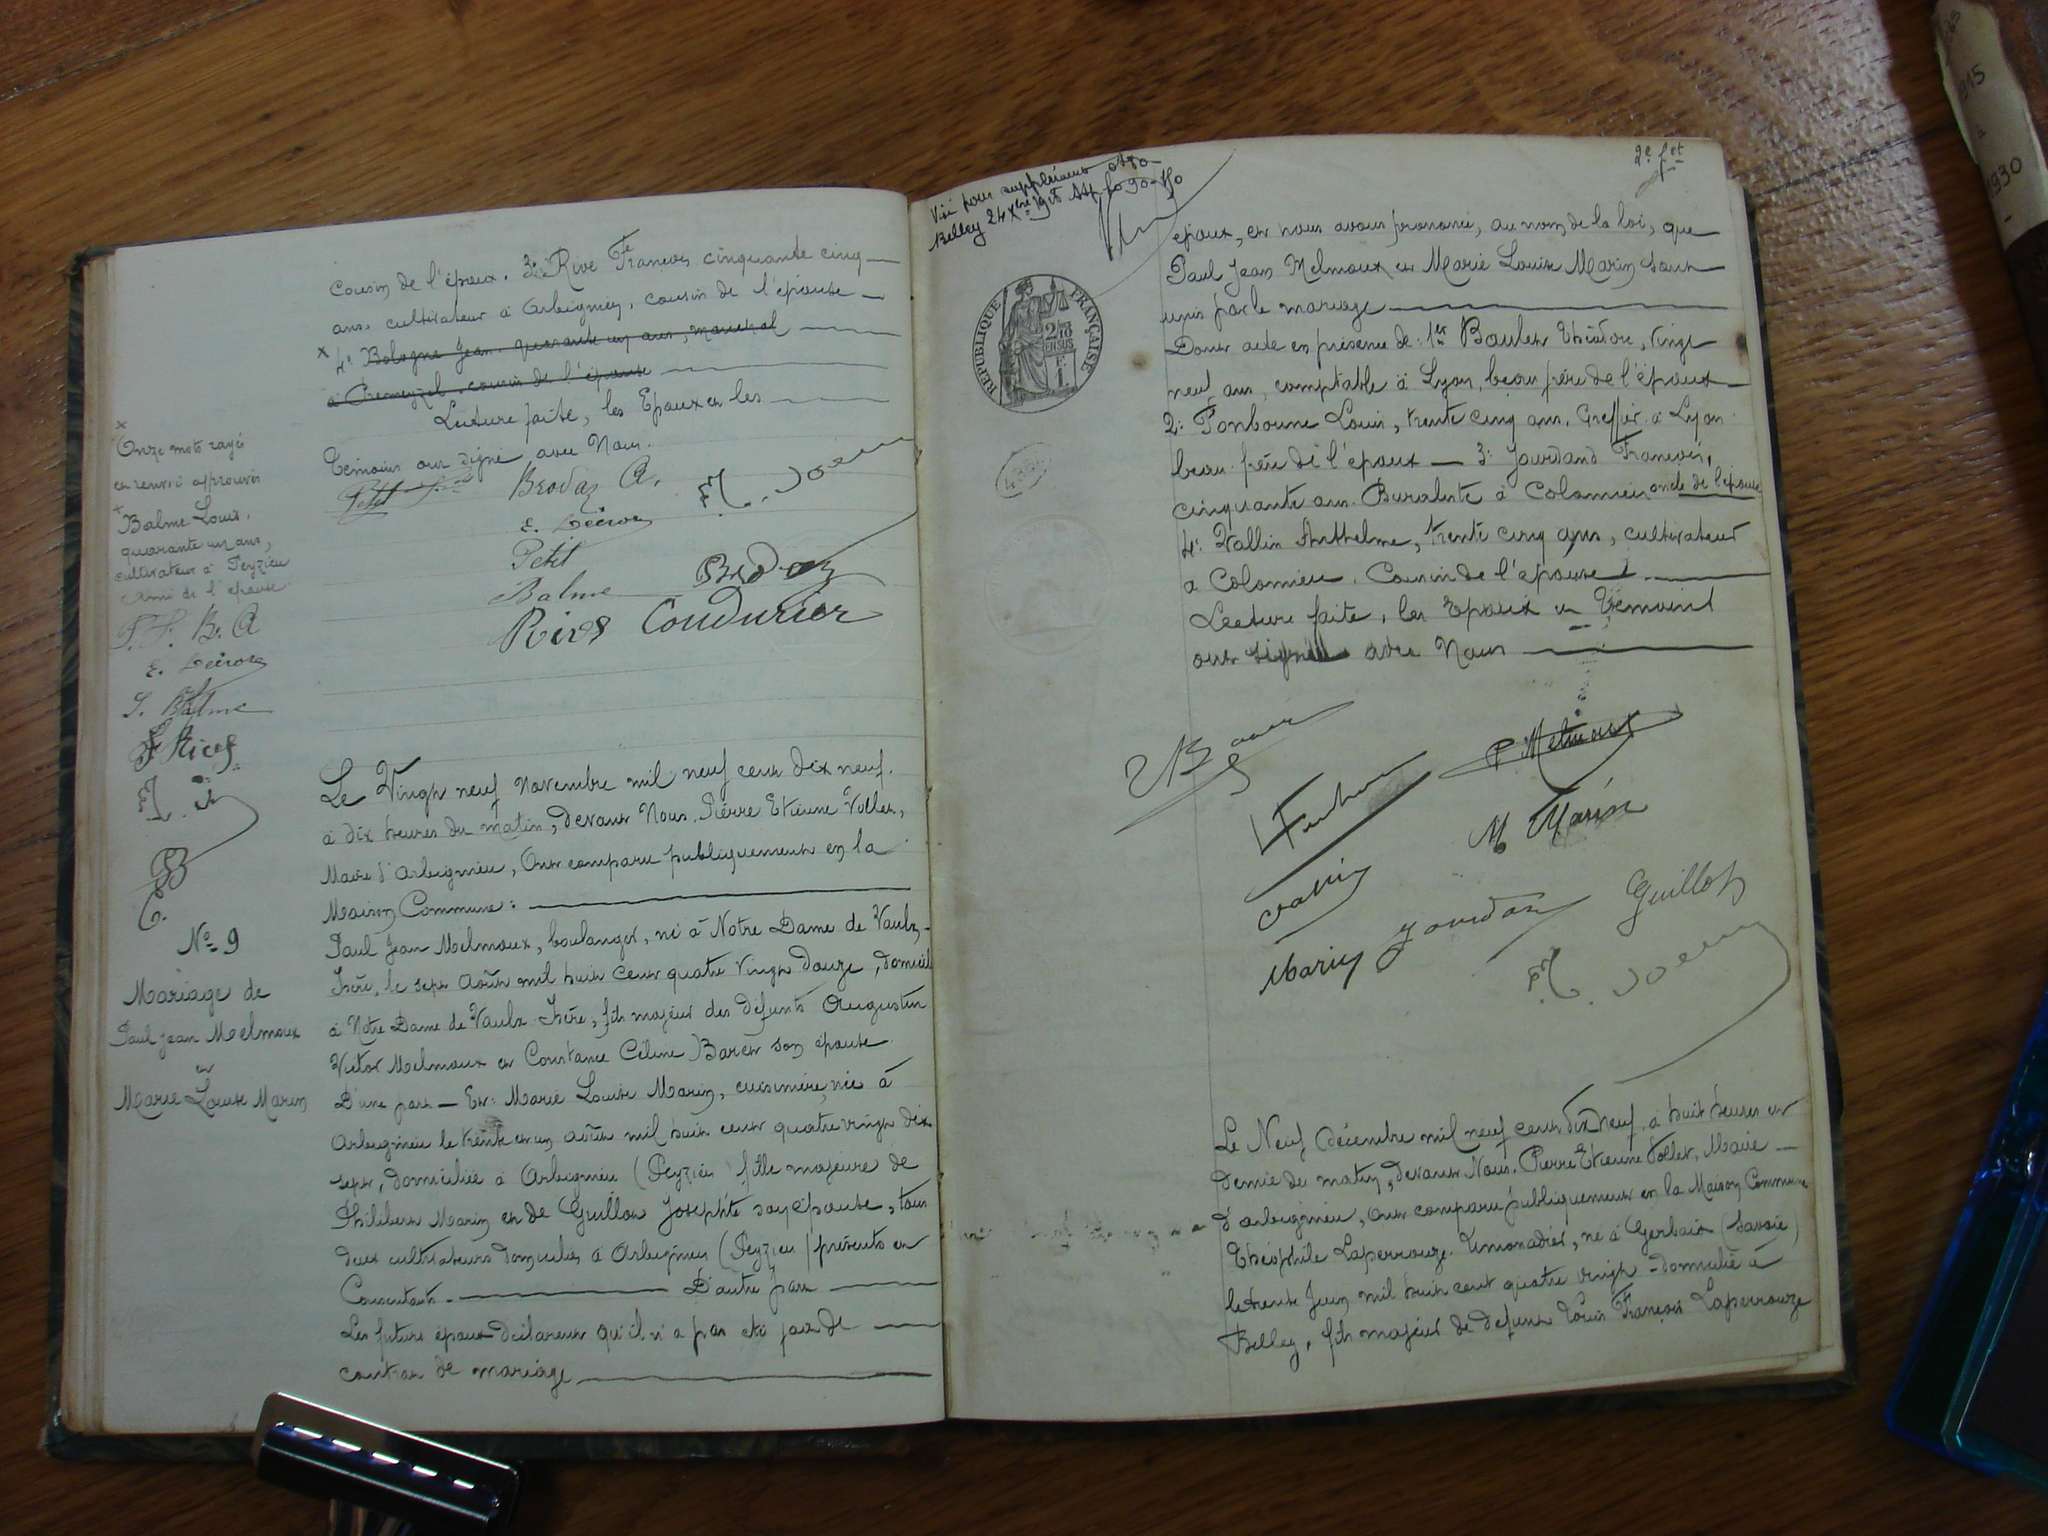 cousin de l'époux. 3º Rive François cinquante cinq
ans. cultivateur à Arbignieu, cousin de l'épouse
x 4º Bologne Jean. quarante un ans, marechal
à Premeyzel. cousin de l'épouse
Lecture faite, les Epoux et les
Témoins ont signé avec Nous.
Petit
Brodaz A.
E. Décroze
Petit
Balme
Brodaz
Rives Coudurier
x
Onze mots rayés
et renvoi approuvés
x
Balme Louis,
quarante un ans,
cultivateur à Peyzieu
ami de l'épouse
B. A
E. Décroze
Balme
F Rives
C.
Nº 9
Mariage de
Paul Jean Melmoux
et
Marie Louise Marin
Le Vingt neuf Novembre mil neuf cent dix neuf.
à dix heures du matin, devant Nous. Pierre Etienne Vollet,
Maire d'Arbignieu, Ont comparu publiquement en la
Maison Commune:
Paul Jean Melmoux, boulanger, né à Notre Dame de Vaulx
Isère, le sept Août mil huit cent quatre vingt douze, domicil
à Notre Dame de Vaulx Isère, fils majeur des défunts Augustin
Victor Melmoux et Constance Céline Baret son épouse.
D'une part — Et: Marie Louise Marin, cuisinière, née à
Arbignieu le trente et un août mil huit cent quatre vingt dix
sept, domiciliée à Arbignieu (Peyzieu) fille majeure de
Philibert Marin et de Guillot Josephte son épouse, tous
deux cultivateurs domiciliés à Arbignieu (Peyzieu) présents et
Consentants. D'autre part
Les futurs époux déclarent qu'il n'a pas été fait de
contrat de mariage
Visé pour supplément
Belley 24 Xbre 1918
RÉPUBLIQUE FRANÇAISE
2/10
EN SUS
1 F.
2e f et
époux, et nous avons prononcé, au nom de la loi, que
Paul Jean Melmoux et Marie Louise Marin sont
unis par le mariage
Dont acte en présence de: 1er Boulet Théodore, vingt
neuf ans, comptable à Lyon, beau frère de l'époux
2º Fonbonne Louis, trente cinq ans. Greffier à Lyon
beau frère de l'époux — 3º Jourdand François,
cinquante ans. Buraliste à Colomieu oncle de l'épouse
4º Vallin Anthelme, trente cinq ans, cultivateur
à Colomieu. Cousin de l'épouse
Lecture faite, les Epoux et Témoins
ont signé avec Nous
P. Melmoux
M Marin
Vallin
Guillot
Marin
Jourdan
Le Neuf décembre mil neuf cent dix neuf, à huit heures et
demie du matin, devant Nous. Pierre Etienne Vollet, Maire
d'arbignieu, Ont comparu publiquement en la Maison Commune
Théophile Laperrouze. Limonadier, né à Gerbaix (Savoie)
le trente Juin mil huit cent quatre vingt domicilié à
Belley, fils majeur de defunt Louis François Laperrouze
1915
à
1930